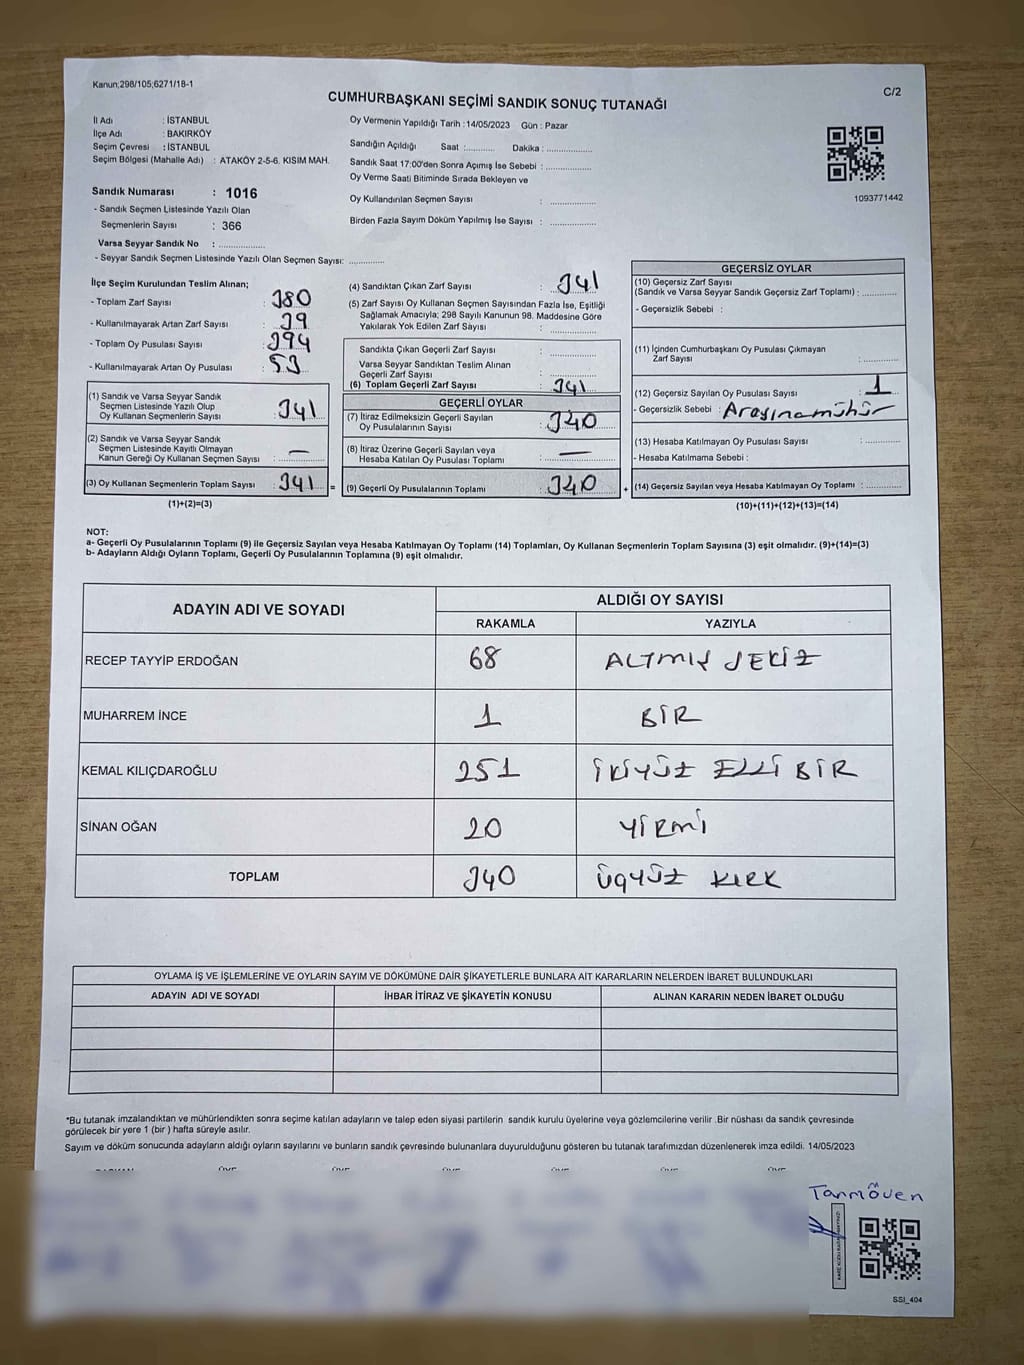 Kanun;298/105;6271/18-1
C/2
CUMHURBAŞKANI SEÇİMİ SANDIK SONUÇ TUTANAĞI
İl Adı : İSTANBUL
İlçe Adı : BAKIRKÖY
Seçim Çevresi : İSTANBUL
Seçim Bölgesi (Mahalle Adı) : ATAKÖY 2-5-6. KISIM MAH.
Sandık Numarası : 1016
- Sandık Seçmen Listesinde Yazılı Olan
Seçmenlerin Sayısı : 366
Varsa Seyyar Sandık No : ...............
- Seyyar Sandık Seçmen Listesinde Yazılı Olan Seçmen Sayısı: ............
Oy Vermenin Yapıldığı Tarih : 14/05/2023 Gün : Pazar
Sandığın Açıldığı Saat :.......... Dakika : ...............
Sandık Saat 17:00'den Sonra Açımış İse Sebebi : ...............
Oy Verme Saati Bitiminde Sırada Bekleyen ve
Oy Kullandırılan Seçmen Sayısı : ...............
Birden Fazla Sayım Döküm Yapılmış İse Sayısı : ...............
1093771442
İlçe Seçim Kurulundan Teslim Alınan;
- Toplam Zarf Sayısı : 380
- Kullanılmayarak Artan Zarf Sayısı : 39
- Toplam Oy Pusulası Sayısı : 394
- Kullanılmayarak Artan Oy Pusulası : 53
(1) Sandık ve Varsa Seyyar Sandık
Seçmen Listesinde Yazılı Olup
Oy Kullanan Seçmenlerin Sayısı : 341
(2) Sandık ve Varsa Seyyar Sandık
Seçmen Listesinde Kayıtlı Olmayan
Kanun Gereği Oy Kullanan Seçmen Sayısı : —
(3) Oy Kullanan Seçmenlerin Toplam Sayısı : 341 =
(1)+(2)=(3)
(4) Sandıktan Çıkan Zarf Sayısı : 341
(5) Zarf Sayısı Oy Kullanan Seçmen Sayısından Fazla İse, Eşitliği
Sağlamak Amacıyla; 298 Sayılı Kanunun 98. Maddesine Göre
Yakılarak Yok Edilen Zarf Sayısı : ...............
Sandıkta Çıkan Geçerli Zarf Sayısı : ...............
Varsa Seyyar Sandıktan Teslim Alınan
Geçerli Zarf Sayısı : ...............
(6) Toplam Geçerli Zarf Sayısı : 341
GEÇERLİ OYLAR
(7) İtiraz Edilmeksizin Geçerli Sayılan
Oy Pusulalarının Sayısı : 340
(8) İtiraz Üzerine Geçerli Sayılan veya
Hesaba Katılan Oy Pusulası Toplamı : —
(9) Geçerli Oy Pusulalarının Toplamı : 340 +
GEÇERSİZ OYLAR
(10) Geçersiz Zarf Sayısı
(Sandık ve Varsa Seyyar Sandık Geçersiz Zarf Toplamı) : ............
- Geçersizlik Sebebi :
(11) İçinden Cumhurbaşkanı Oy Pusulası Çıkmayan
Zarf Sayısı : ............
(12) Geçersiz Sayılan Oy Pusulası Sayısı : 1
- Geçersizlik Sebebi : Arasına mühür
(13) Hesaba Katılmayan Oy Pusulası Sayısı : ............
- Hesaba Katılmama Sebebi :
(14) Geçersiz Sayılan veya Hesaba Katılmayan Oy Toplamı : ............
(10)+(11)+(12)+(13)=(14)
NOT:
a- Geçerli Oy Pusulalarının Toplamı (9) ile Geçersiz Sayılan veya Hesaba Katılmayan Oy Toplamı (14) Toplamları, Oy Kullanan Seçmenlerin Toplam Sayısına (3) eşit olmalıdır. (9)+(14)=(3)
b- Adayların Aldığı Oyların Toplamı, Geçerli Oy Pusulalarının Toplamına (9) eşit olmalıdır.
ADAYIN ADI VE SOYADI ALDIĞI OY SAYISI
RAKAMLA YAZIYLA
RECEP TAYYİP ERDOĞAN 68 ALTMIŞ SEKİZ
MUHARREM İNCE 1 BİR
KEMAL KILIÇDAROĞLU 251 İKİYÜZ ELLİ BİR
SİNAN OĞAN 20 YİRMİ
TOPLAM 340 ÜÇYÜZ KIRK
OYLAMA İŞ VE İŞLEMLERİNE VE OYLARIN SAYIM VE DÖKÜMÜNE DAİR ŞİKAYETLERLE BUNLARA AİT KARARLARIN NELERDEN İBARET BULUNDUKLARI
ADAYIN ADI VE SOYADI İHBAR İTİRAZ VE ŞİKAYETİN KONUSU ALINAN KARARIN NEDEN İBARET OLDUĞU
*Bu tutanak imzalandıktan ve mühürlendikten sonra seçime katılan adayların ve talep eden siyasi partilerin sandık kurulu üyelerine veya gözlemcilerine verilir .Bir nüshası da sandık çevresinde
görülecek bir yere 1 (bir ) hafta süreyle asılır.
Sayım ve döküm sonucunda adayların aldığı oyların sayılarını ve bunların sandık çevresinde bulunanlara duyurulduğunu gösteren bu tutanak tarafımızdan düzenlenerek imza edildi. 14/05/2023
SSI_404